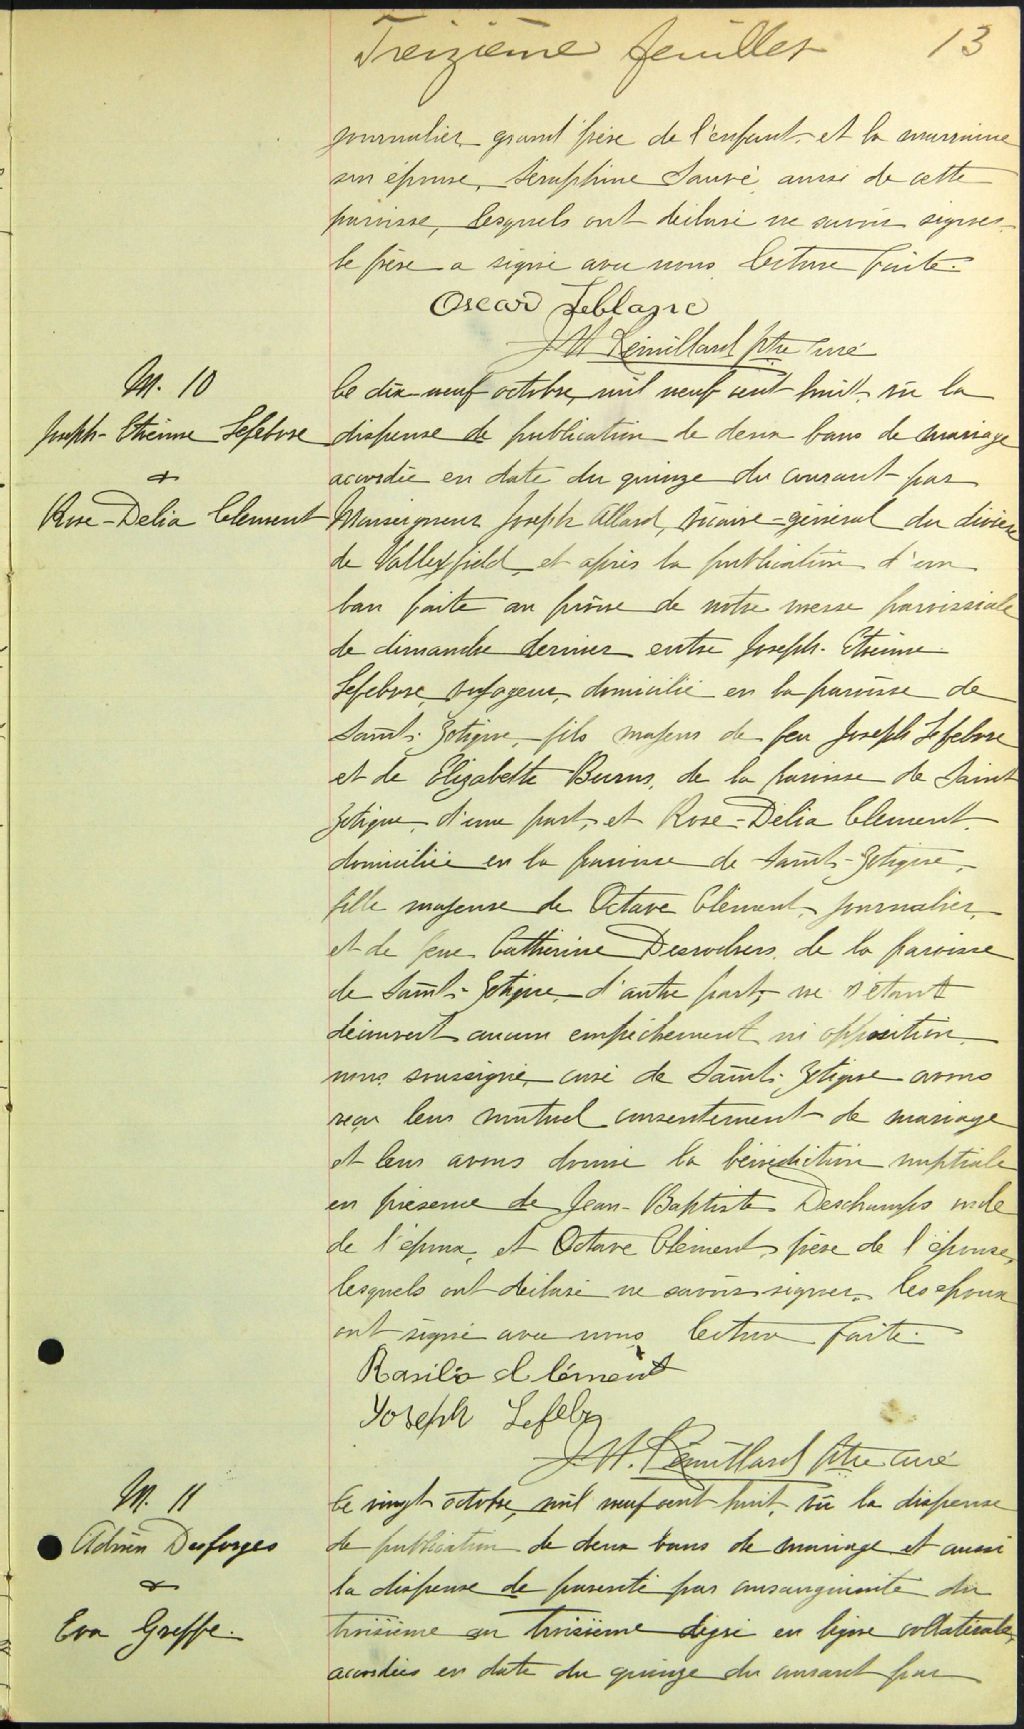 Treizième feuillet 13
journalier grand'père de l'enfant, et la marraine
son épouse, Séraphine Sauvé, aussi de cette
paroisse, lesquels ont déclaré ne savoir signer.
le père a signé avec nous. Lecture faite.
Oscar Leblanc
J. H. Rémillard ptre curé
M. 10
Joseph-Etienne Lefebvre
&
Rose-Delia Clement
Le dix-neuf octobre, mil neuf cent huit, vu la
dispense de publication de deux bans de mariage
accordée en date du quinze du courant par
Monseigneur Joseph Allard, vicaire-général du diocèse
de Valleyfield, et après la publication d'un
ban faite au prône de notre messe paroissiale
de dimanche dernier entre Joseph-Etienne
Lefebvre, voyageur, domicilié en la paroisse de
Saint-Zotique, fils majeur de feu Joseph Lefebvre
et de Elizabeth Burns, de la paroisse de Saint
Zotique, d'une part, et Rose-Délia Clement,
domiciliée en la paroisse de Saint-Zotique,
fille majeure de Octave Clément, journalier,
et de feue Catherine Desrochers, de la paroisse
de Saint-Zotique, d'autre part, ne s'étant
découvert aucun empêchement ni opposition,
nous, soussigné, curé de Saint-Zotique avons
reçu leur mutuel consentement de mariage
et leur avons donné la bénédiction nuptiale
en présence de Jean-Baptiste Deschamps oncle
de l'époux, et Octave Clément, frère de l'épouse,
lesquels ont déclaré ne savoir signer. Les époux
ont signé avec nous. Lecture faite.
Rasilia Clément
Joseph Lefebv
J. H. Rémillard ptre curé
M. 11
Adrien Desforges
&
Eva Greffe.
Le vingt octobre, mil neuf cent huit, vu la dispense
de publication de deux bans de mariage et aussi
la dispense de parenté par consanguinité du
troisième au troisième degré en ligne collatérale,
accordées en date du quinze du courant par